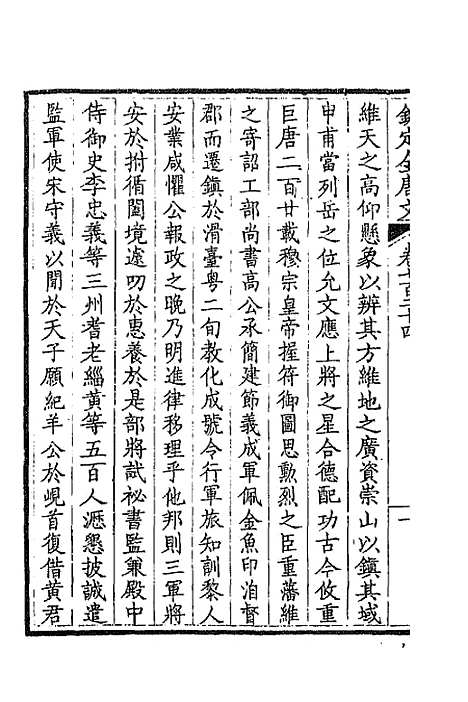 欽定全唐文 卷七百二十四 一
維天之高仰懸象以辨其方維地之廣資崇山以鎮其域
申甫當列岳之位允文應上將之星合德配功古今攸重
巨唐二百廿載穆宗皇帝握符御圖思勲烈之臣重藩維
之寄詔工部尚書高公承簡建節義成軍佩金魚印洎督
郡而遷鎮於滑臺粤二旬教化成號令行軍旅知訓黎人
安業咸懼公報政之晚乃明進律移理乎他邦則三軍將
安於拊循闔境遽叨於惠養於是部將試祕書監兼殿中
侍御史李忠義等三州耆老緇黃等五百人瀝懇披誠遣
監軍使宋守義以聞於天子願紀羊公於峴首復借黄君